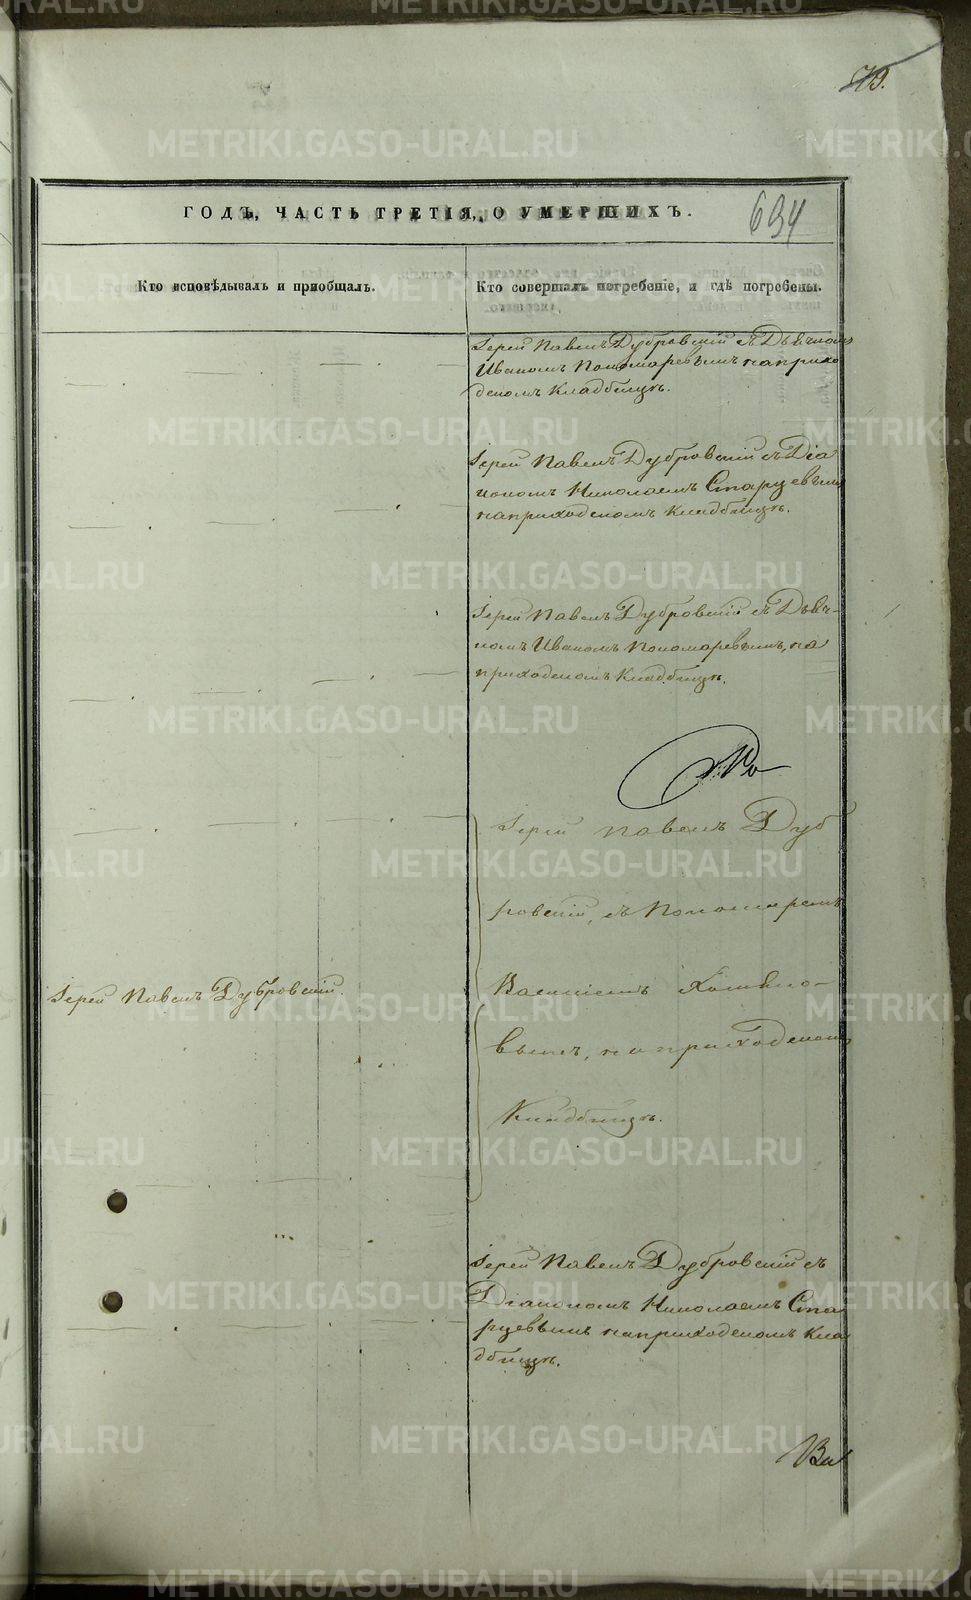 79.
ГОДЪ, ЧАСТЬ ТРЕТІЯ, О УМЕРШИХЪ.
694
Кто исповѣдывалъ и пріобщалъ.
Кто совершалъ погребеніе, и гдѣ погребены.
Іерей Павелъ Дубровскій съ Дьячкомъ
Иваномъ Пономаревымъ на прихо
дскомъ Кладбищѣ.
Іерей Павелъ Дубровскій съ Діа
кономъ Николаемъ Старцевымъ
на приходскомъ Кладбищѣ.
Іерей Павелъ Дубровскій съ Дьяч-
комъ Иваномъ Пономаревымъ, на
приходскомъ Кладбищѣ.
Іерей Павелъ Дуб
ровскій, съ Пономаремъ
Іерей Павелъ Дубровскій.
Василіемъ
вымъ, на приходскомъ
Кладбищѣ.
Іерей Павелъ Дубровскій съ
Діакономъ Николаемъ Ста
рцевымъ на приходскомъ Кла
дбищѣ.
METRIKI.GASO-URAL.RU